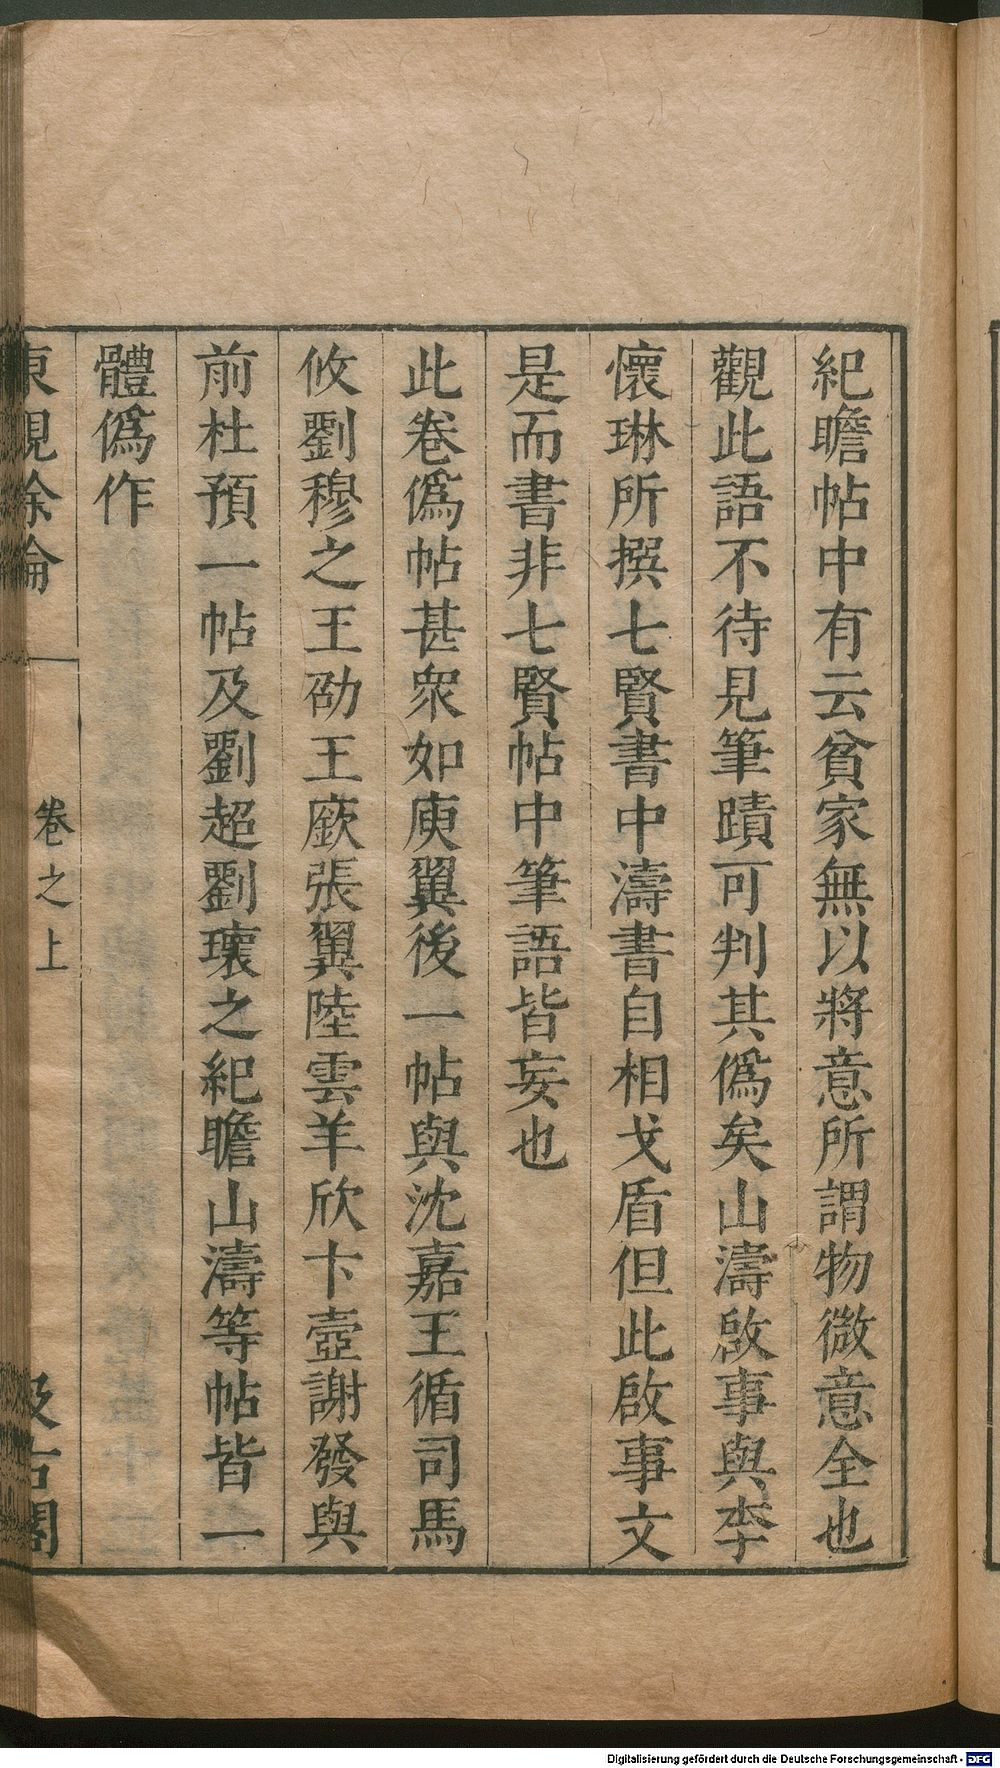 紀瞻帖中有云貧家無以將意所謂物微意全也
觀此語不待見筆蹟可判其偽矣山濤啟事與李
懷琳所撰七賢書中濤書自相戈盾但此啟事文
是而書非七賢帖中筆語皆妄也
此卷偽帖甚衆如庾翼後一帖與沈嘉王循司馬
攸劉穆之王劭王廞張翼陸雲羊欣卞壼謝發與
前杜預一帖及劉超劉瓌之紀瞻山濤等帖皆一
體偽作
東觀餘論
卷之上
汲古閣
Digitalisierung gefördert durch die Deutsche Forschungsgemeinschaft - DFG